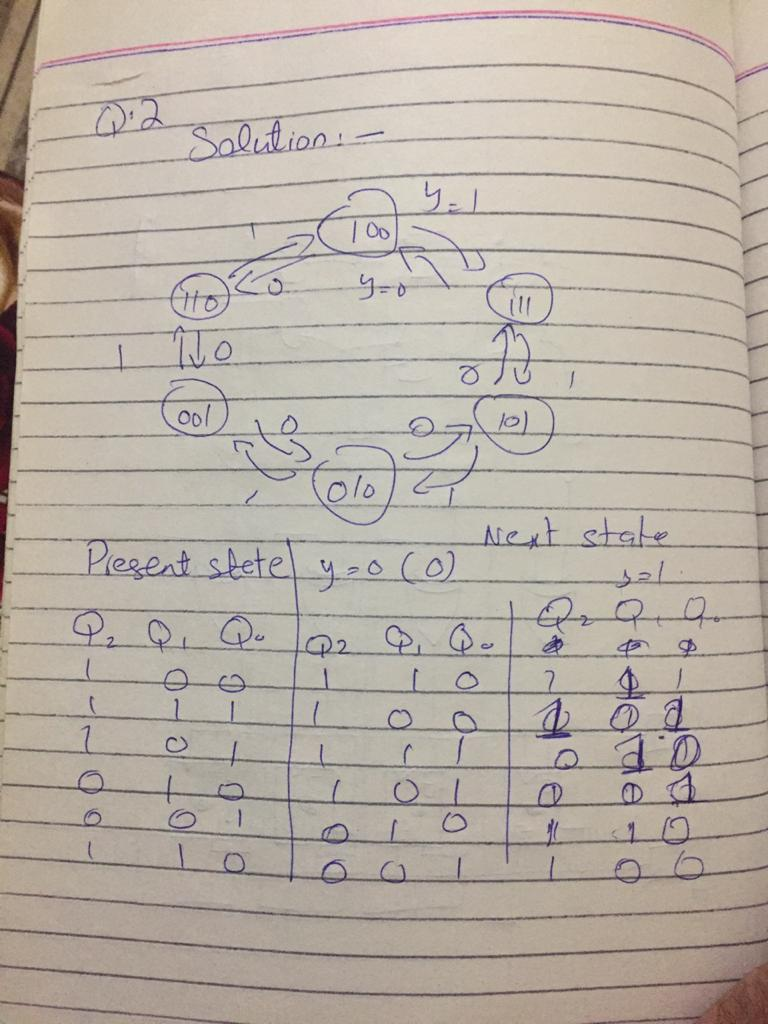 Q:2
Solution:-
1 100 y=1
110 0 y=0 111
1 0 0 1
001 0 0 101
1 010 1
Next state
Present stete y=0 (0) y=1
Q2 Q1 Q0 Q2 Q1 Q0 Q2 Q1 Q0
1 0 0 1 1 0 1 1 1
1 1 1 1 0 0 1 0 1
1 0 1 1 1 1 0 1 0
0 1 0 1 0 1 0 0 1
0 0 1 0 1 0 1 1 0
1 1 0 0 0 1 1 0 0